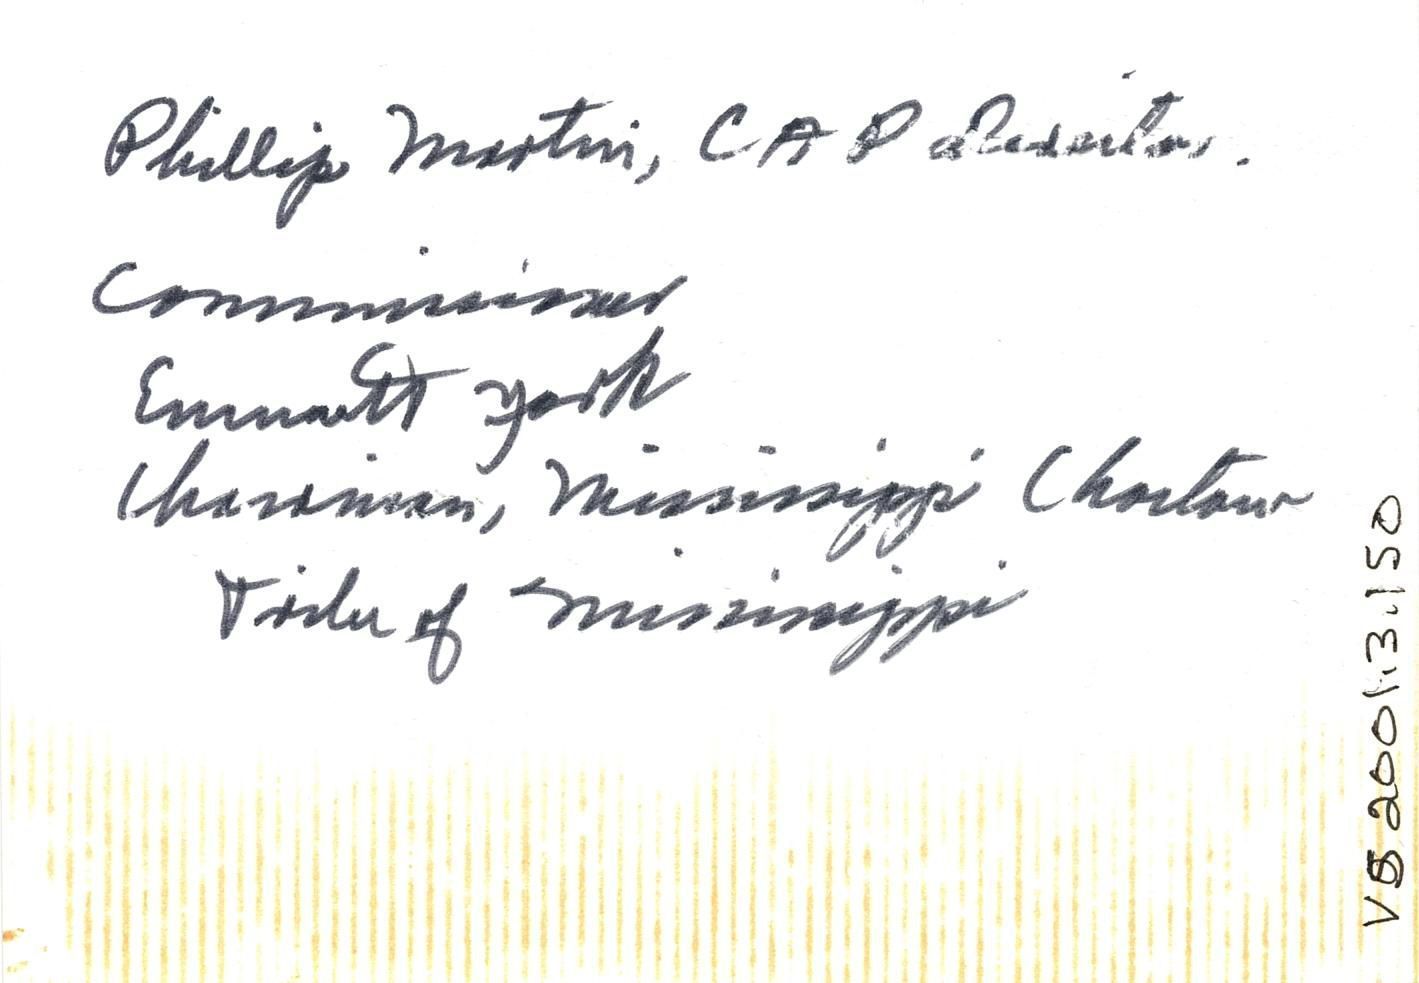 Phillip Martin, CAP director.
Commissioner
Emmett York
Chairman, Mississippi Choctaw
Tribe of Mississippi
VB 2001.13.150